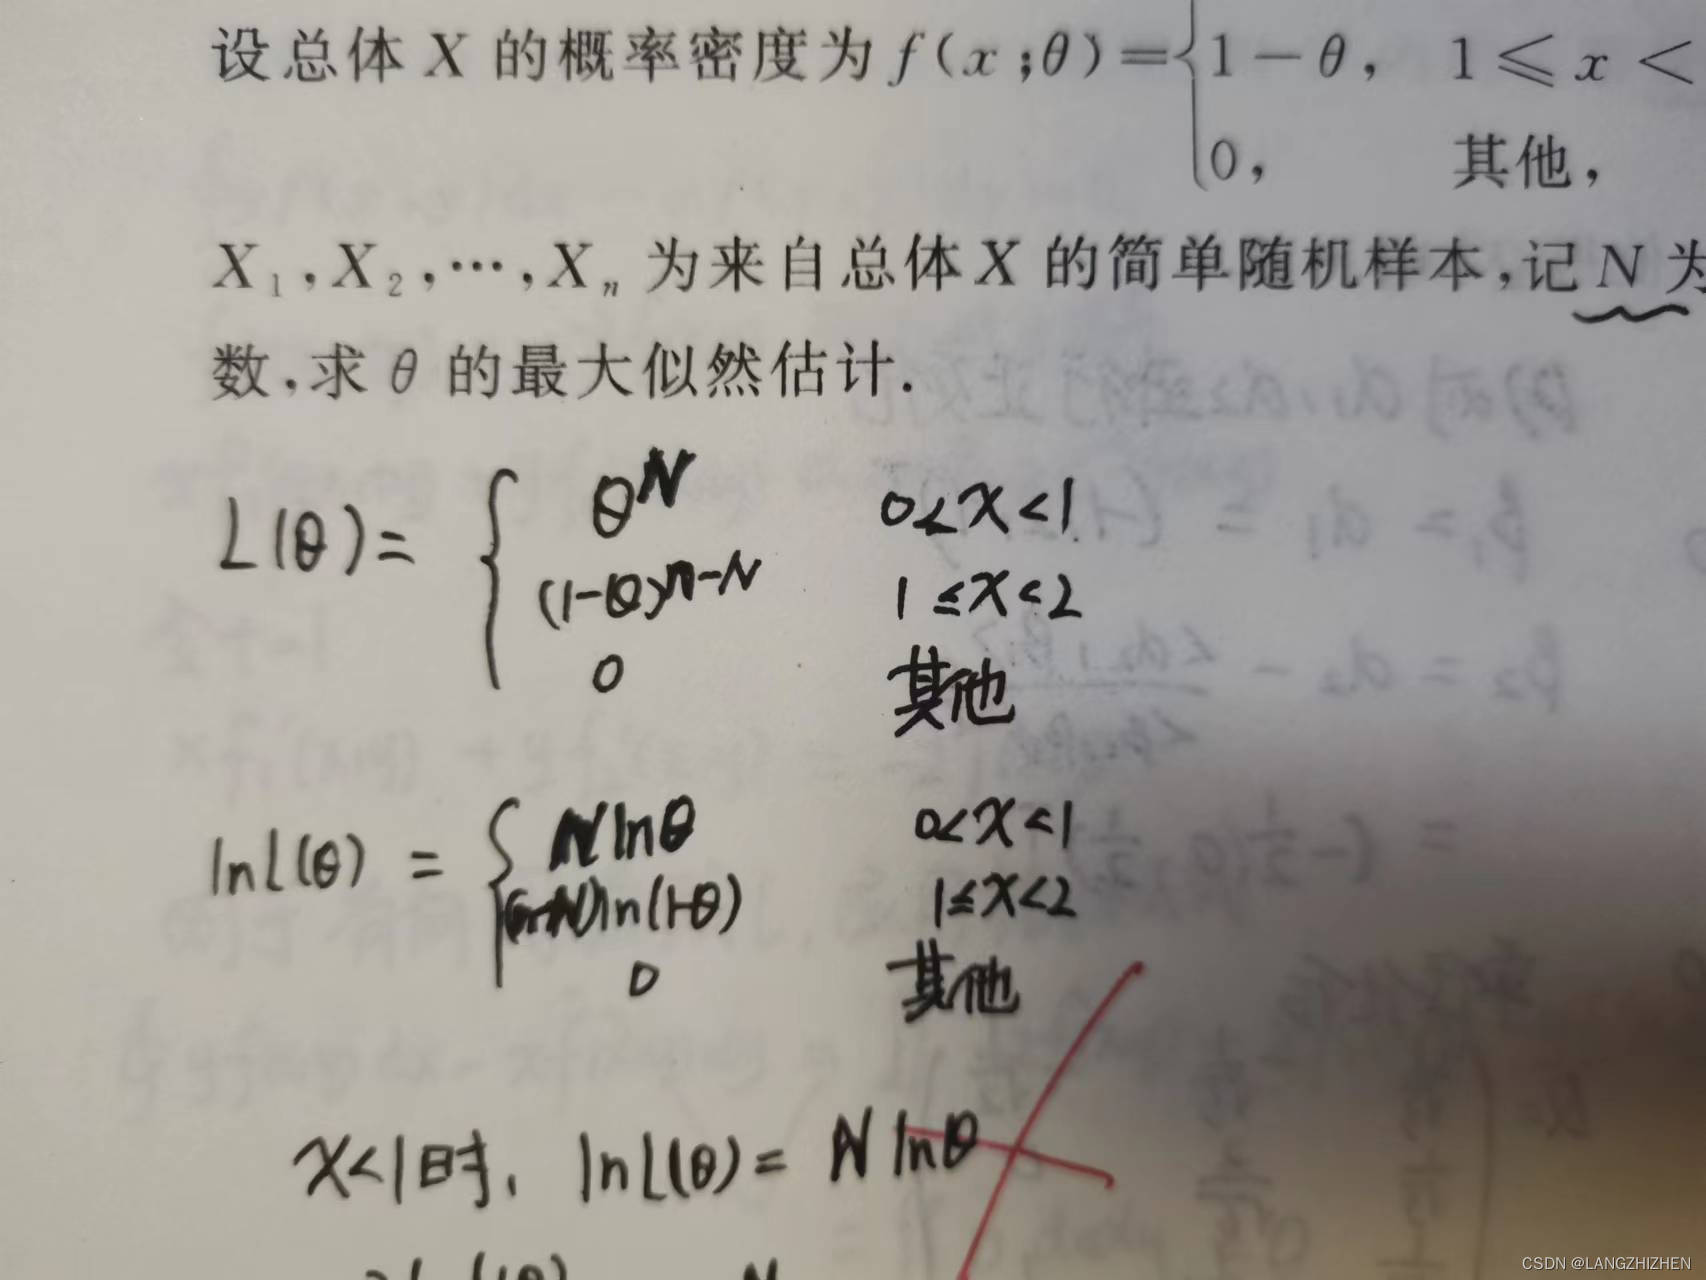 设总体 X 的概率密度为 f(x;θ)={1-θ, 1≤x<
0, 其他,
X₁,X₂,…,Xₙ 为来自总体X 的简单随机样本,记N为
数,求 θ 的最大似然估计.
L(θ)= { θ^N 0<x<1
(1-θ)^{n-N} 1≤x<2
0 其他
lnL(θ) = { Nlnθ 0<x<1
(n-N)ln(1-θ) 1≤x<2
0 其他
x<1时, lnL(θ)= N lnθ
CSDN @LANGZHIZHEN